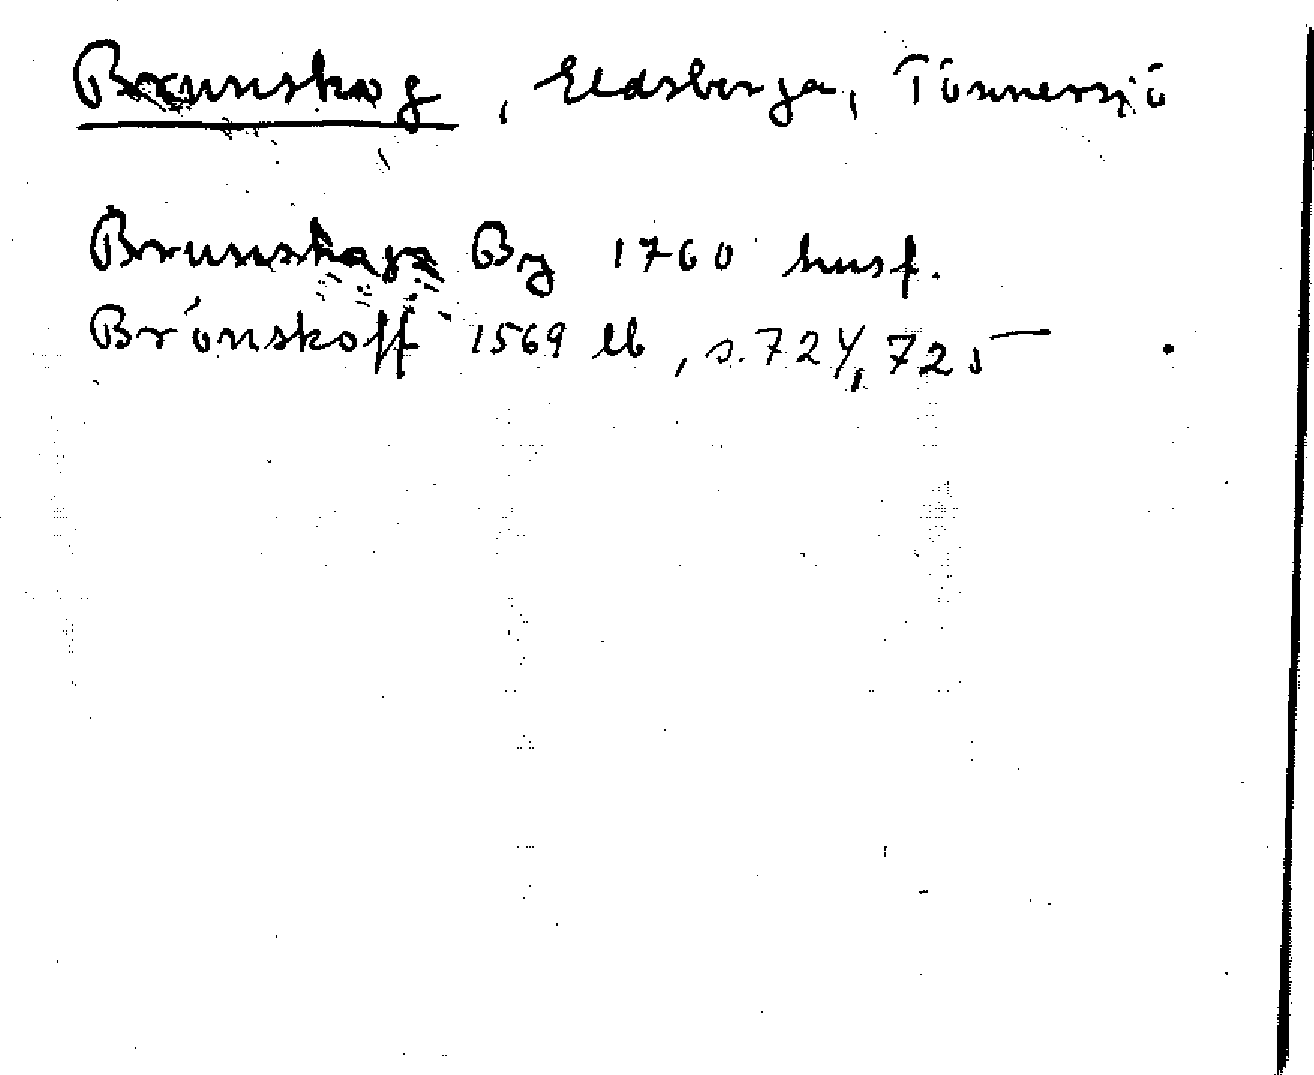 Brunskog, Eldsberga, Tönnersjö
Brunskaga By 1760 husf.
Brönskoff 1569 lb, s. 724, 725